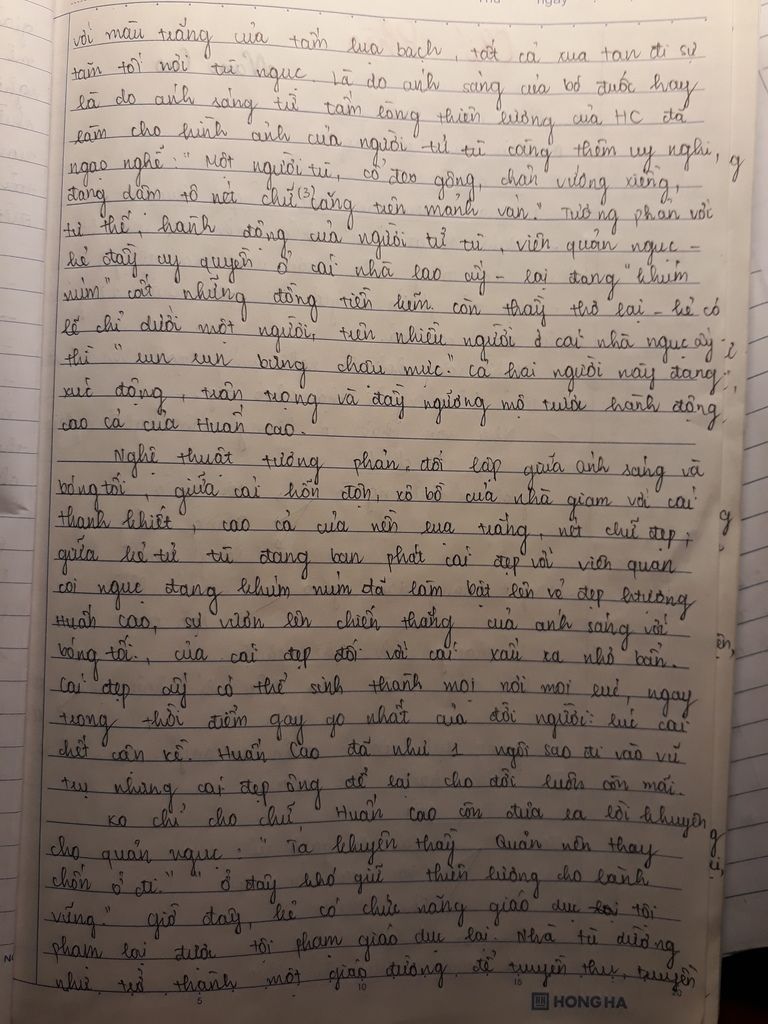 với màu trắng của tấm lụa bạch, tất cả xua tan đi sự
tăm tối nơi tù ngục. Là do ánh sáng của bó đuốc hay
là do ánh sáng từ tấm lòng thiên lương của HC đã
làm cho hình ảnh của người tử tù càng thêm uy nghi,
ngạo nghễ: "Một người tù, cổ đeo gông, chân vướng xiềng,
đang dậm tô nét chữ (3) căng trên mảnh ván." Tương phản với
tư thế, hành động của người tử tù, viên quản ngục -
kẻ đầy uy quyền ở cái nhà lao ấy - lại đang "khúm
núm" cất những đồng tiền kẽm. còn thầy thơ lại - kẻ có
lẽ chỉ dưới một người, trên nhiều người ở cái nhà ngục ấy
thì "run run bưng chậu mực." cả hai người này đang
xúc động, trân trọng và đầy ngưỡng mộ trước hành động
cao cả của Huấn Cao.
Nghệ thuật tương phản, đối lập giữa ánh sáng và
bóng tối, giữa cái hỗn độn, xô bồ của nhà giam với cái
thanh khiết, cao cả của nền lụa trắng, nét chữ đẹp;
giữa kẻ tử tù đang ban phát cái đẹp với viên quan
coi ngục đang khúm núm đã làm bật lên vẻ đẹp h.tượng
Huấn Cao, sự vươn lên chiến thắng của ánh sáng với
bóng tối, của cái đẹp đối với cái xấu xa nhơ bẩn.
Cái đẹp ấy có thể sinh thành mọi nơi mọi lúc, ngay
trong thời điểm gay go nhất của đời người: lúc cái
chết cận kề. Huấn Cao đã như 1 ngôi sao đi vào vũ
trụ nhưng cái đẹp ông để lại cho đời luôn còn mãi.
Ko chỉ cho chữ Huấn Cao còn đưa ra lời khuyên
cho quản ngục: "Ta khuyên thầy Quản nên thay
chốn ở đi." "ở đây khó giữ thiên lương cho lành
vững." giờ đây, kẻ có chức năng giáo dục tội
phạm lại được tội phạm giáo dục lại. Nhà tù dường
như trở thành một giáo đường để truyền thụ, truyền
HONG HA